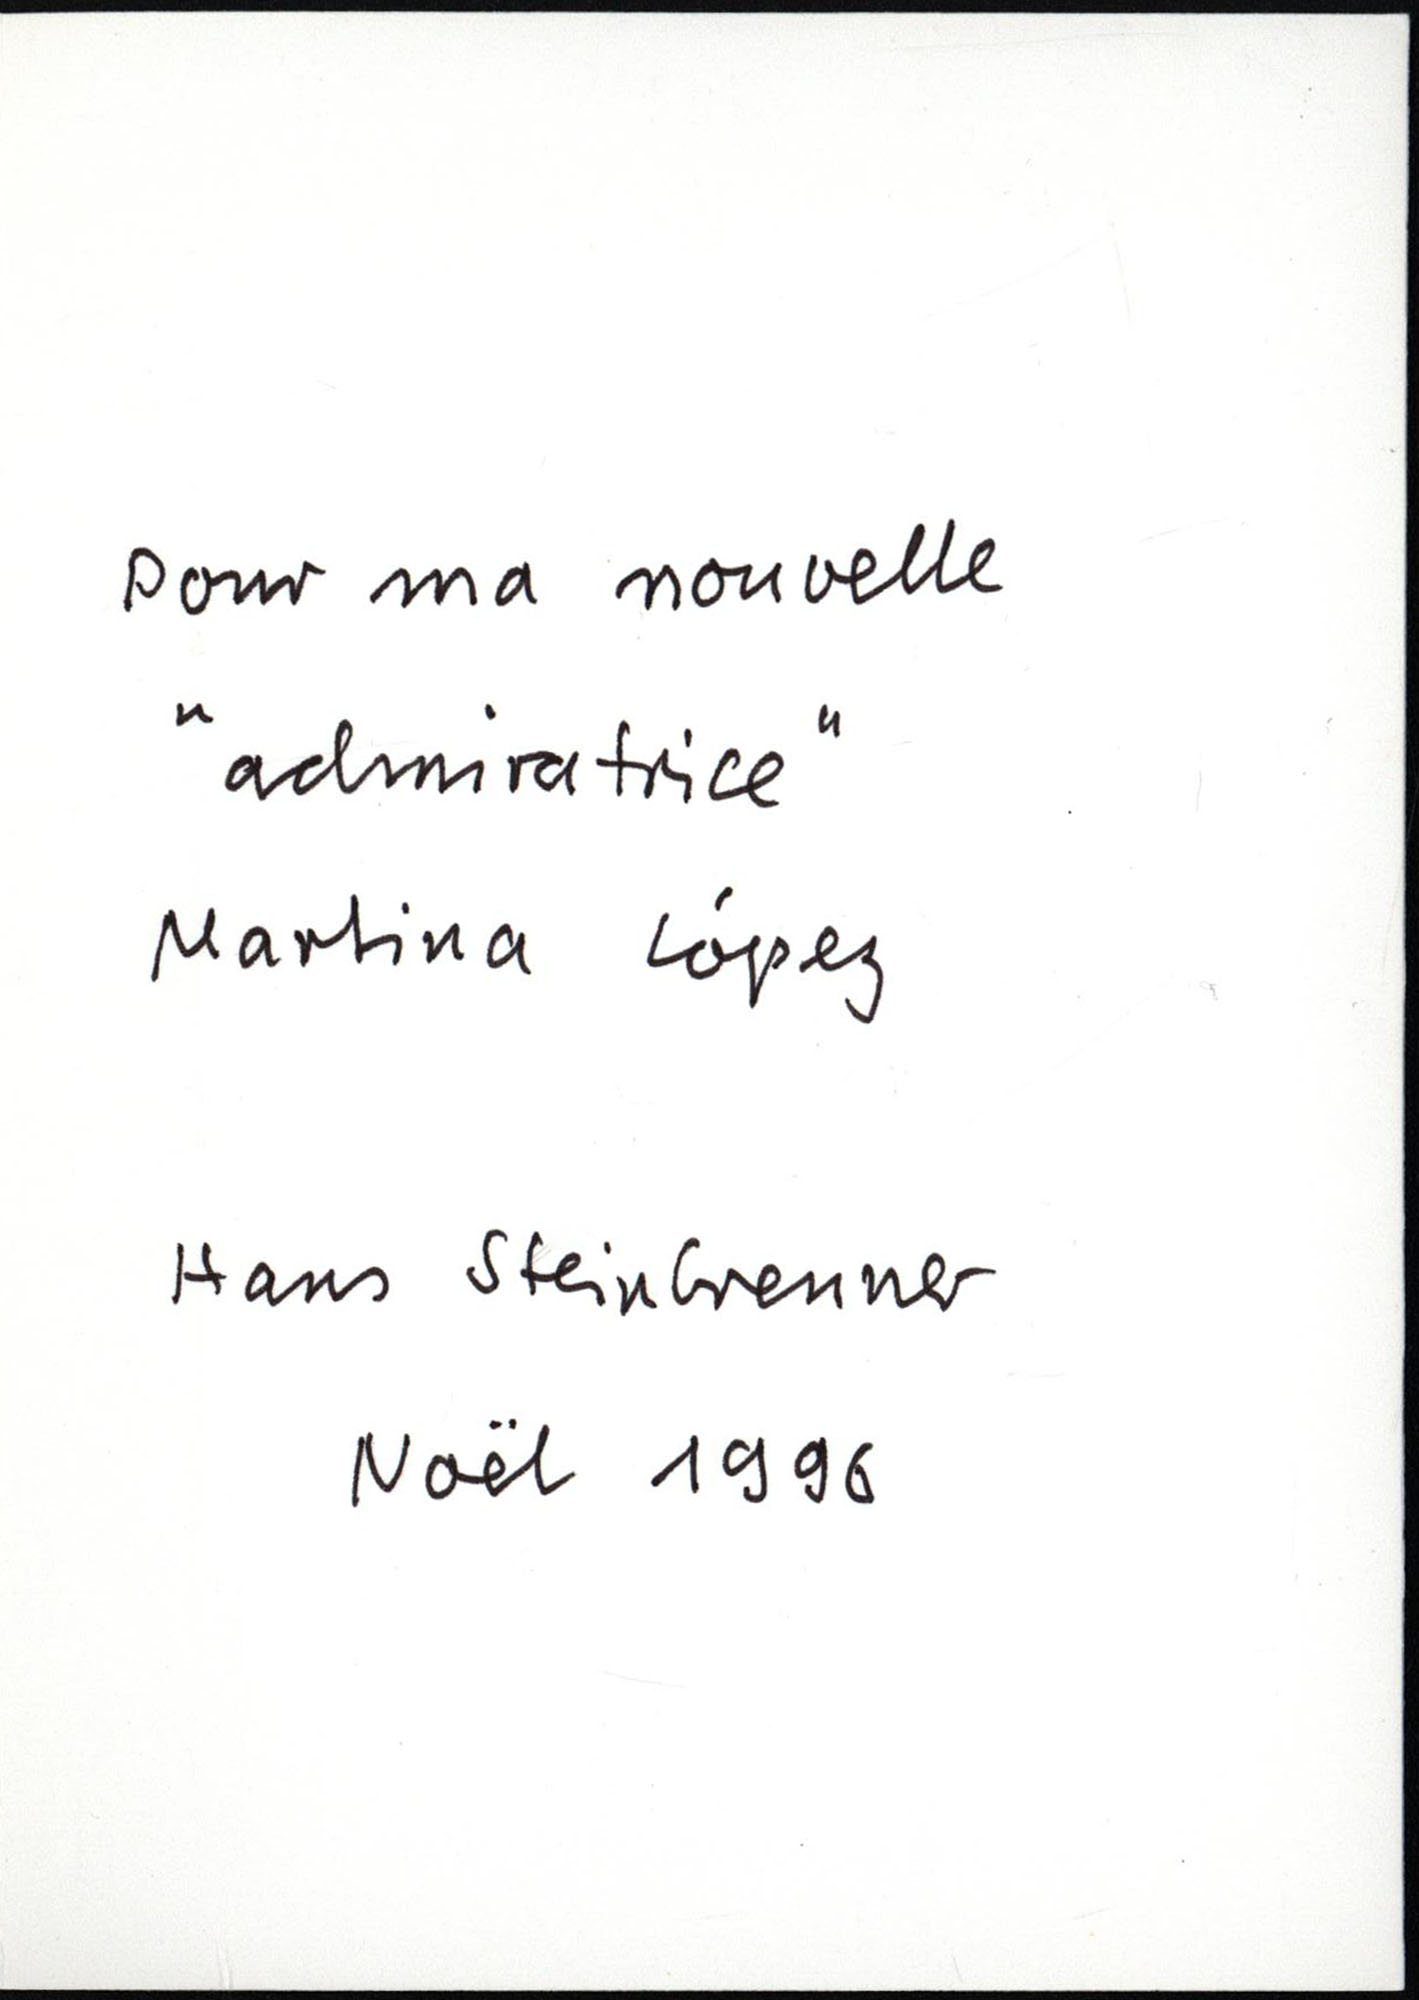 Pour ma nouvelle
"admiratrice"
Martina López
Hans Steinbrenner
Noël 1996